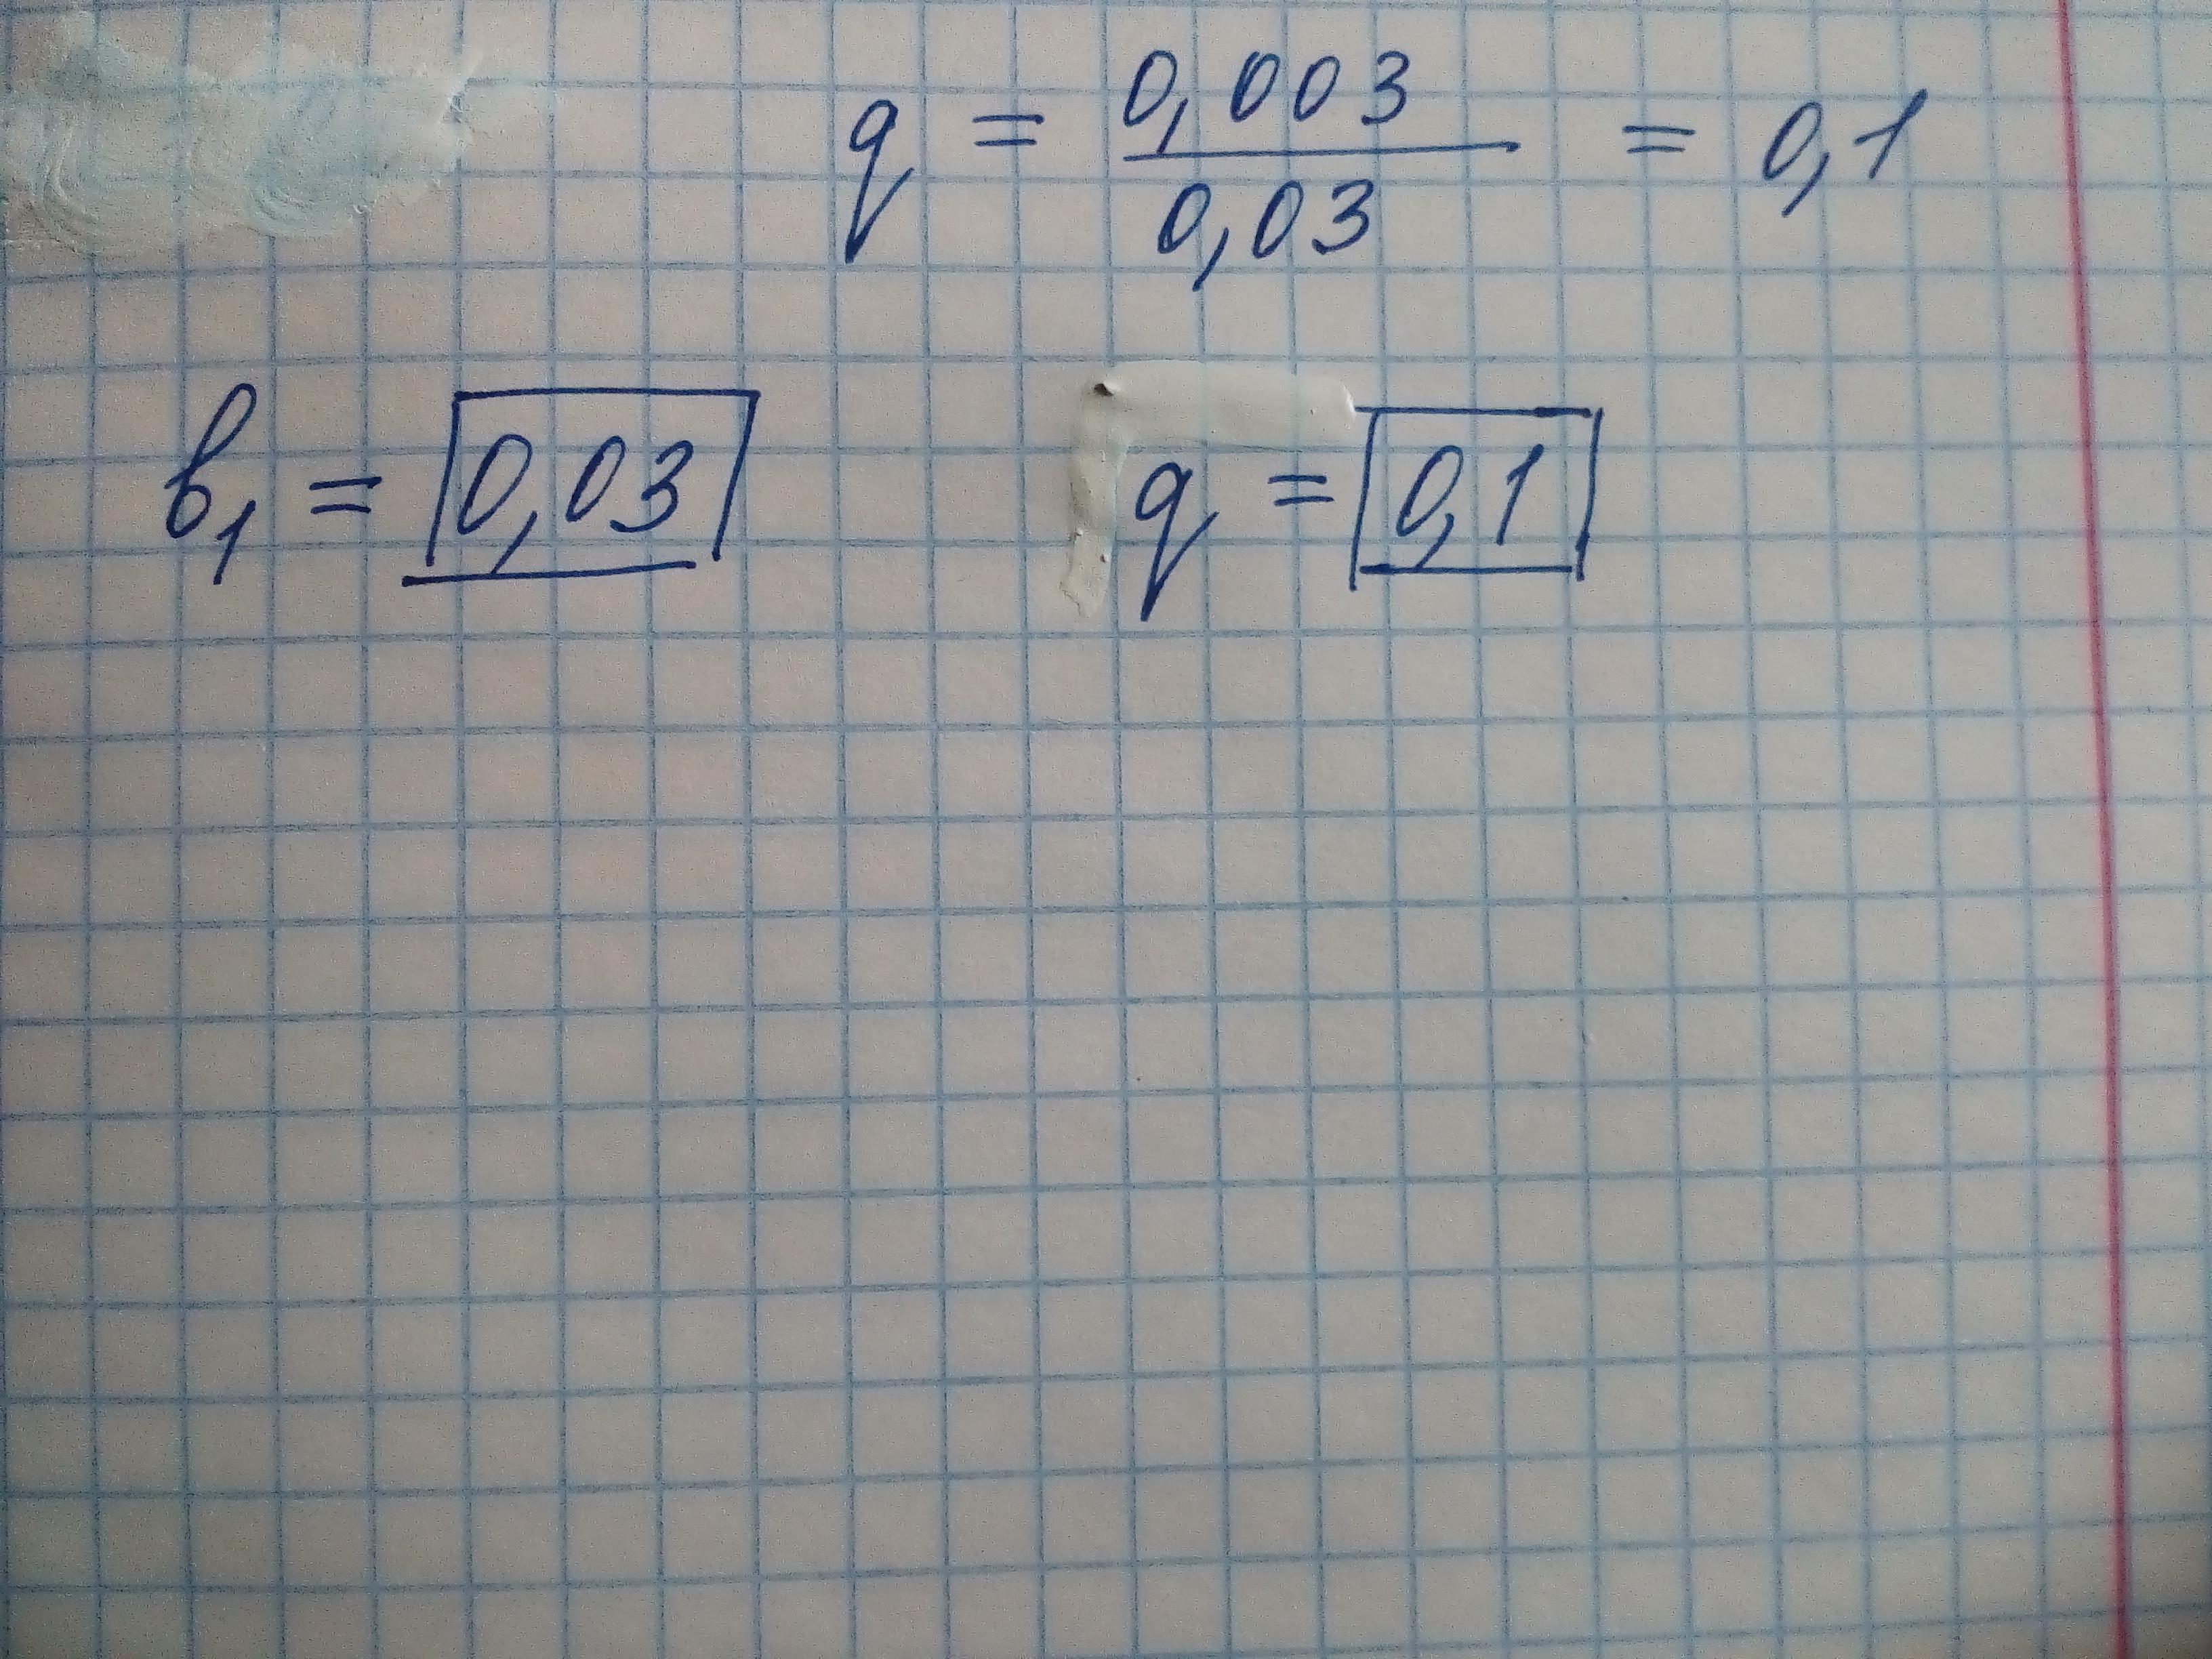 q = 0,003 / 0,03 = 0,1
b₁ = 0,03 q = 0,1